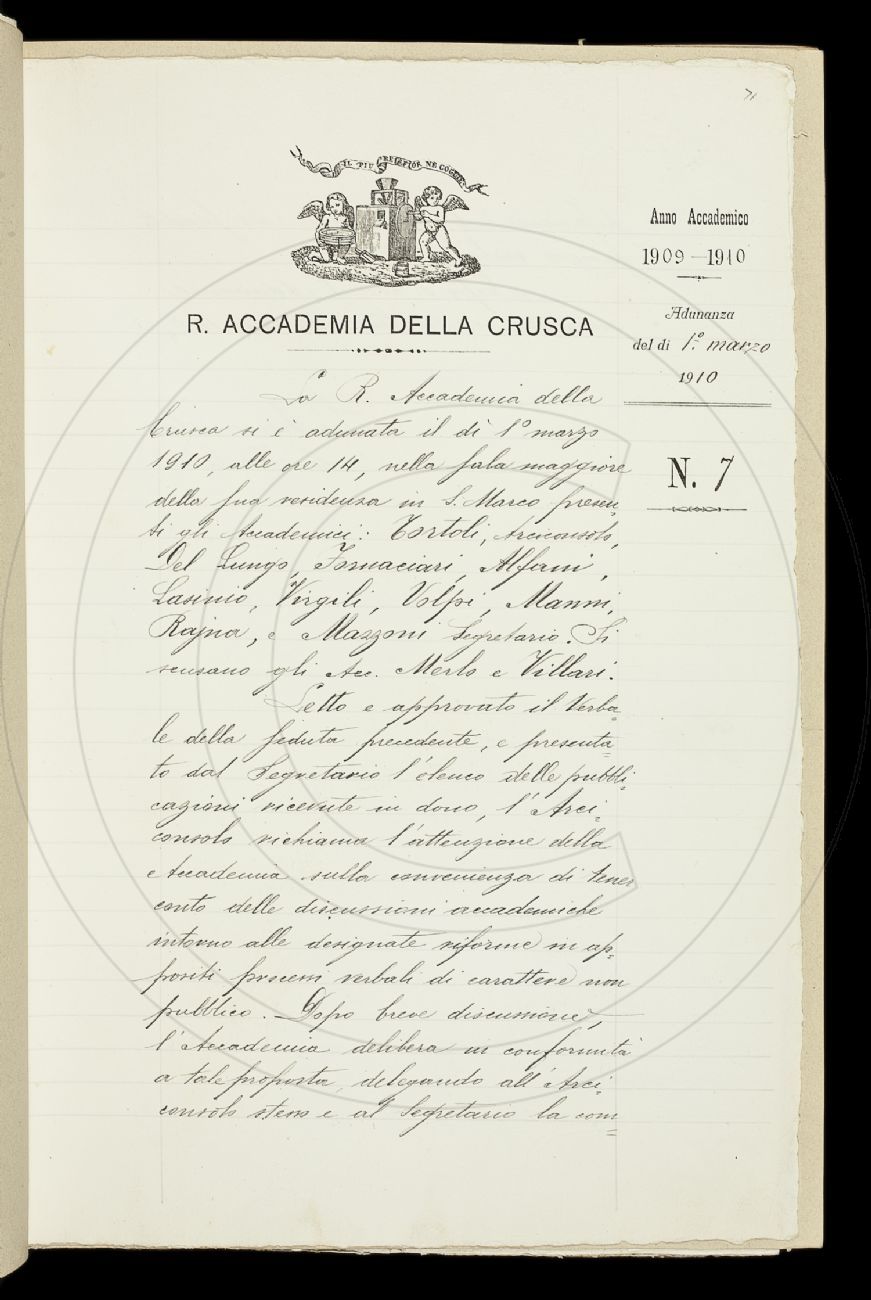 71
IL PIÙ BEL FIOR NE COGLIE
Anno Accademico
1909-1910
R. ACCADEMIA DELLA CRUSCA
Adunanza
del dì 1º marzo
1910
N. 7
La R. Accademia della
Crusca si è adunata il dì 1º marzo
1910, alle ore 14, nella sala maggiore
della sua residenza in S. Marco presen-
ti gli Accademici: Tortoli, Arciconsolo,
Del Lungo, Fornaciari, Alfani,
Lasinio, Virgili, Volpi, Manni,
Rajna, e Mazzoni Segretario. Si
scusano gli Acc. Merlo e Villari.
Letto e approvato il Verba-
le della seduta precedente, e presenta=
to dal Segretario l'elenco delle pubbli-
cazioni ricevute in dono, l'Arci-
consolo richiama l'attenzione della
Accademia sulla convenienza di tener
conto delle discussioni accademiche
intorno alle designate riforme in ap-
positi processi verbali di carattere non
pubblico. Dopo breve discussione,
l'Accademia delibera in conformità
a tale proposta, delegando all'Arci-
consolo stesso e al Segretario la com=